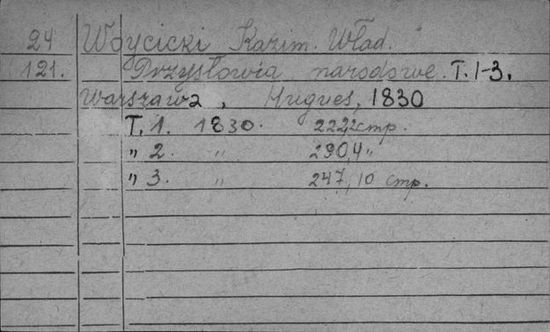 24 Wóycicki Kazim. Wład.
121. Przysłowia narodowe. T. 1-3.
Warszawa, Hugues, 1830
T. 1. 1830. 222,2 stp.
„ 2. „ 290,4 „
„ 3. „ 247,10 стр.